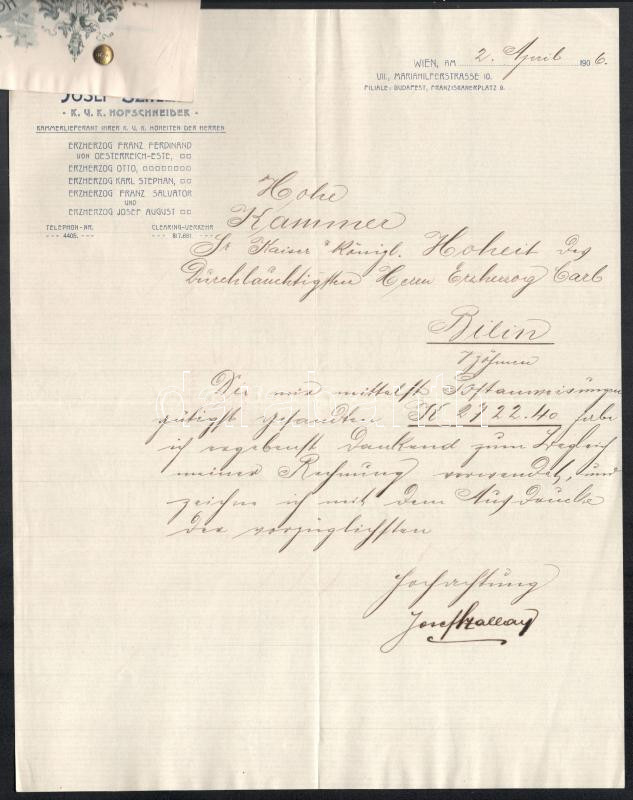 JOSEF
- K. U. K. HOFSCHNEIDER -
KAMMERLIEFERANT IHRER K. U. K. HOHEITEN DER HERREN
ERZHERZOG FRANZ FERDINAND
VON OESTERREICH-ESTE,
ERZHERZOG OTTO,
ERZHERZOG KARL STEPHAN,
ERZHERZOG FRANZ SALVATOR
UND
ERZHERZOG JOSEF AUGUST
TELEPHON-NR. CLEARING-VERKEHR
4405. 817.681.
WIEN, AM 2. April 1906.
VII., MARIAHILFERSTRASSE 10.
FILIALE: BUDAPEST, FRANZISKANERPLATZ 9.
Hohe
Kammer
Sr Kaiser u Königl. Hoheit des
Durchlauchtigsten Herrn Erzherzog Carl
Bilin
Böhmen
Die mir mittelst Postanweisungen
gütigst gesandten K 2122.40 habe
ich ergebenst dankend zum Begleich
meiner Rechnung verwendet, und
zeichne ich mit dem Ausdrucke
der vorzüglichsten
Hochachtung
Josef Szallay
darabanth